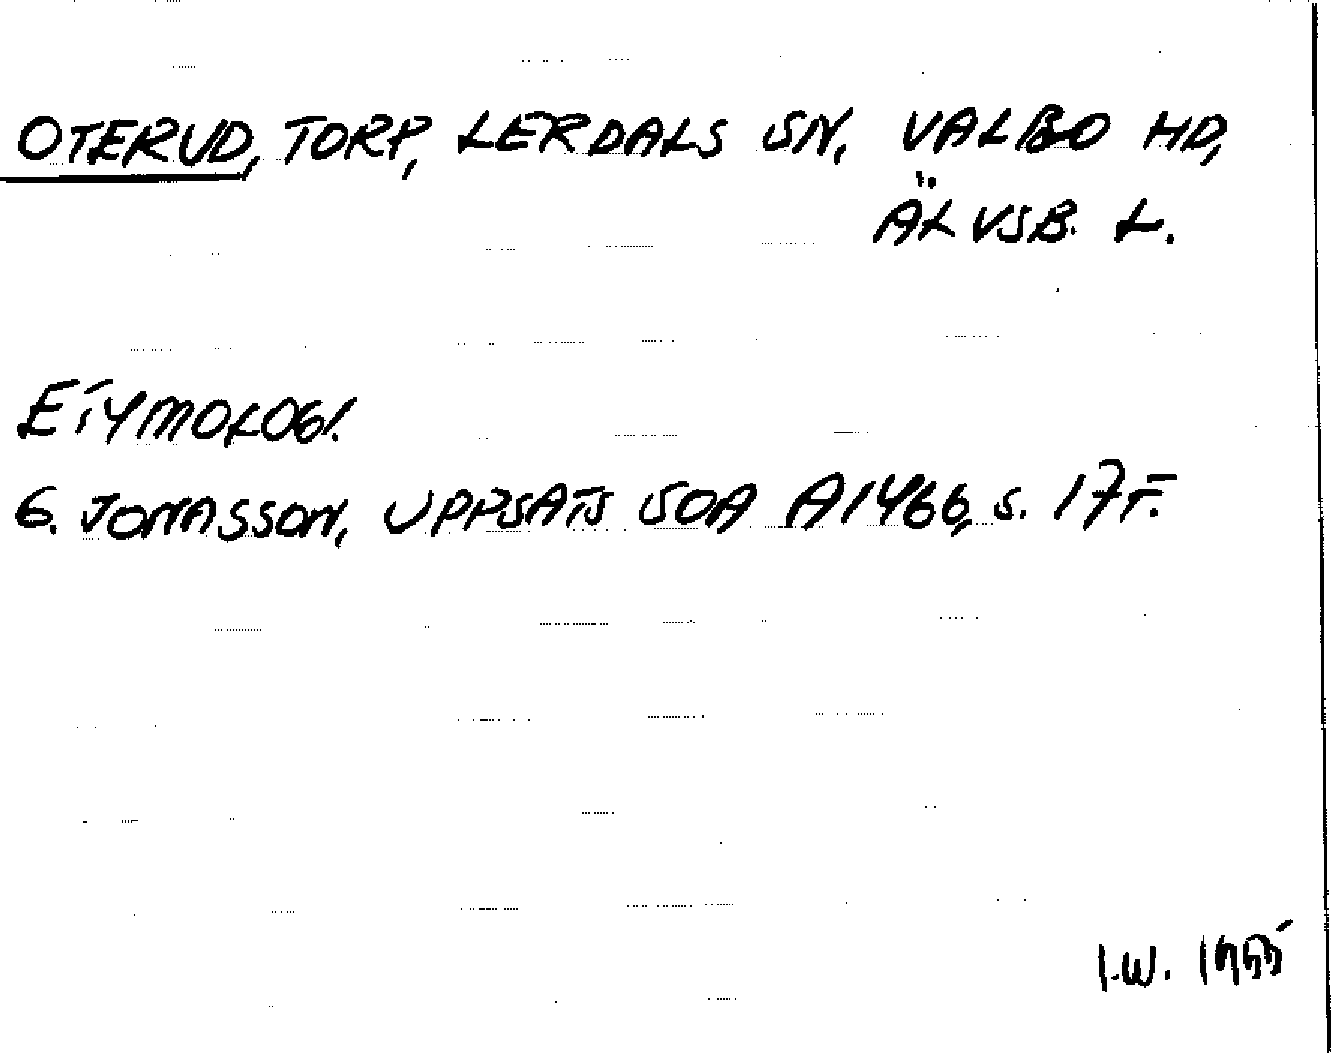 OTERUD, TORP, LERDALS SN, VALBO HD,
ÄLVSB. L.
ETYMOLOGI.
G. JONASSON, UPPSATS SOA A1466, s. 17 F.
I.W.